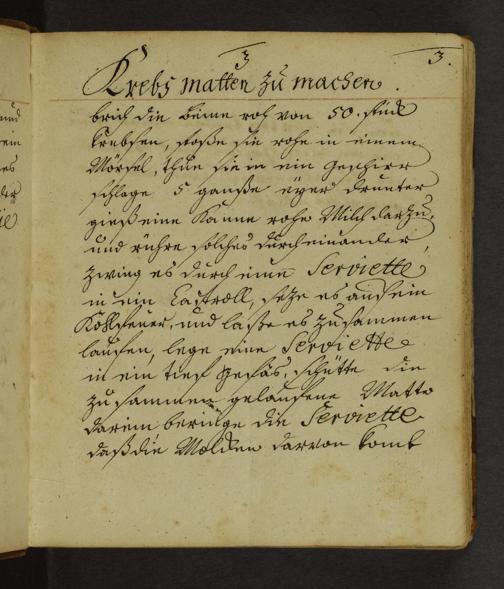 3
3.
Krebs matten zu machen.
brich die beine roh von 50. stück
krebsen, stoße sie rohe in einem
Mörsel, thue sie in ein geschirr
schlage 5 ganße eyer drunter
gieß eine Kanne rohe Milch darzu,
und rühre solches durcheinander,
zwing es durch eine Serviette
in ein Castroll, seze es auf ein
Kohlfeuer, und laße es zusammen
laufen, lege eine Serviette
in ein tief gefäs, schütte die
zusammen gelaufene Matte
darein, die Serviette
daß die Molcken darvon komt
und
ein
es
der